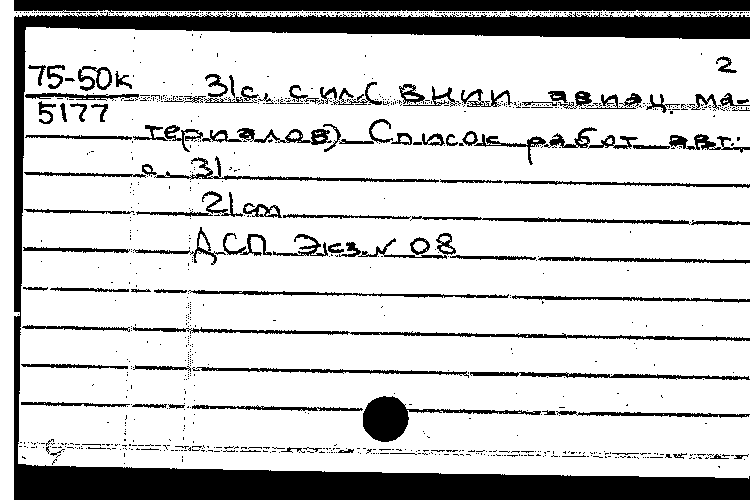 2
75-50к
5177
31с. с ил. (ВНИИ авиац. ма-
териалов). Список работ авт.:
с. 31.
21 cm
ДСП Экз. № 08